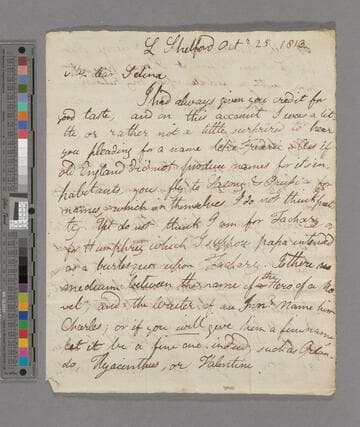 L Shelford Octr 25 1813
My dear Selina
I had always given you credit for
good taste, and on this account I was a lit
tle or rather not a little surprised to hear
you pleading for a name like Frederic. As if
old England did not produce names for its in
habitants, you fly to & Prussia for
names which in themselves I do not think pret
ty. Yet do not think I am for Zachary
or Humphrey which I suppose papa intended
as a burlesque upon Zachary. Is there no
medium between the name of the Hero of a No
vel and the waiter of an Inn? Name him
Charles; or if you will give him a fine name
let it be a fine one indeed, such as Orlan
do, Hyacinthus, or Valentine.